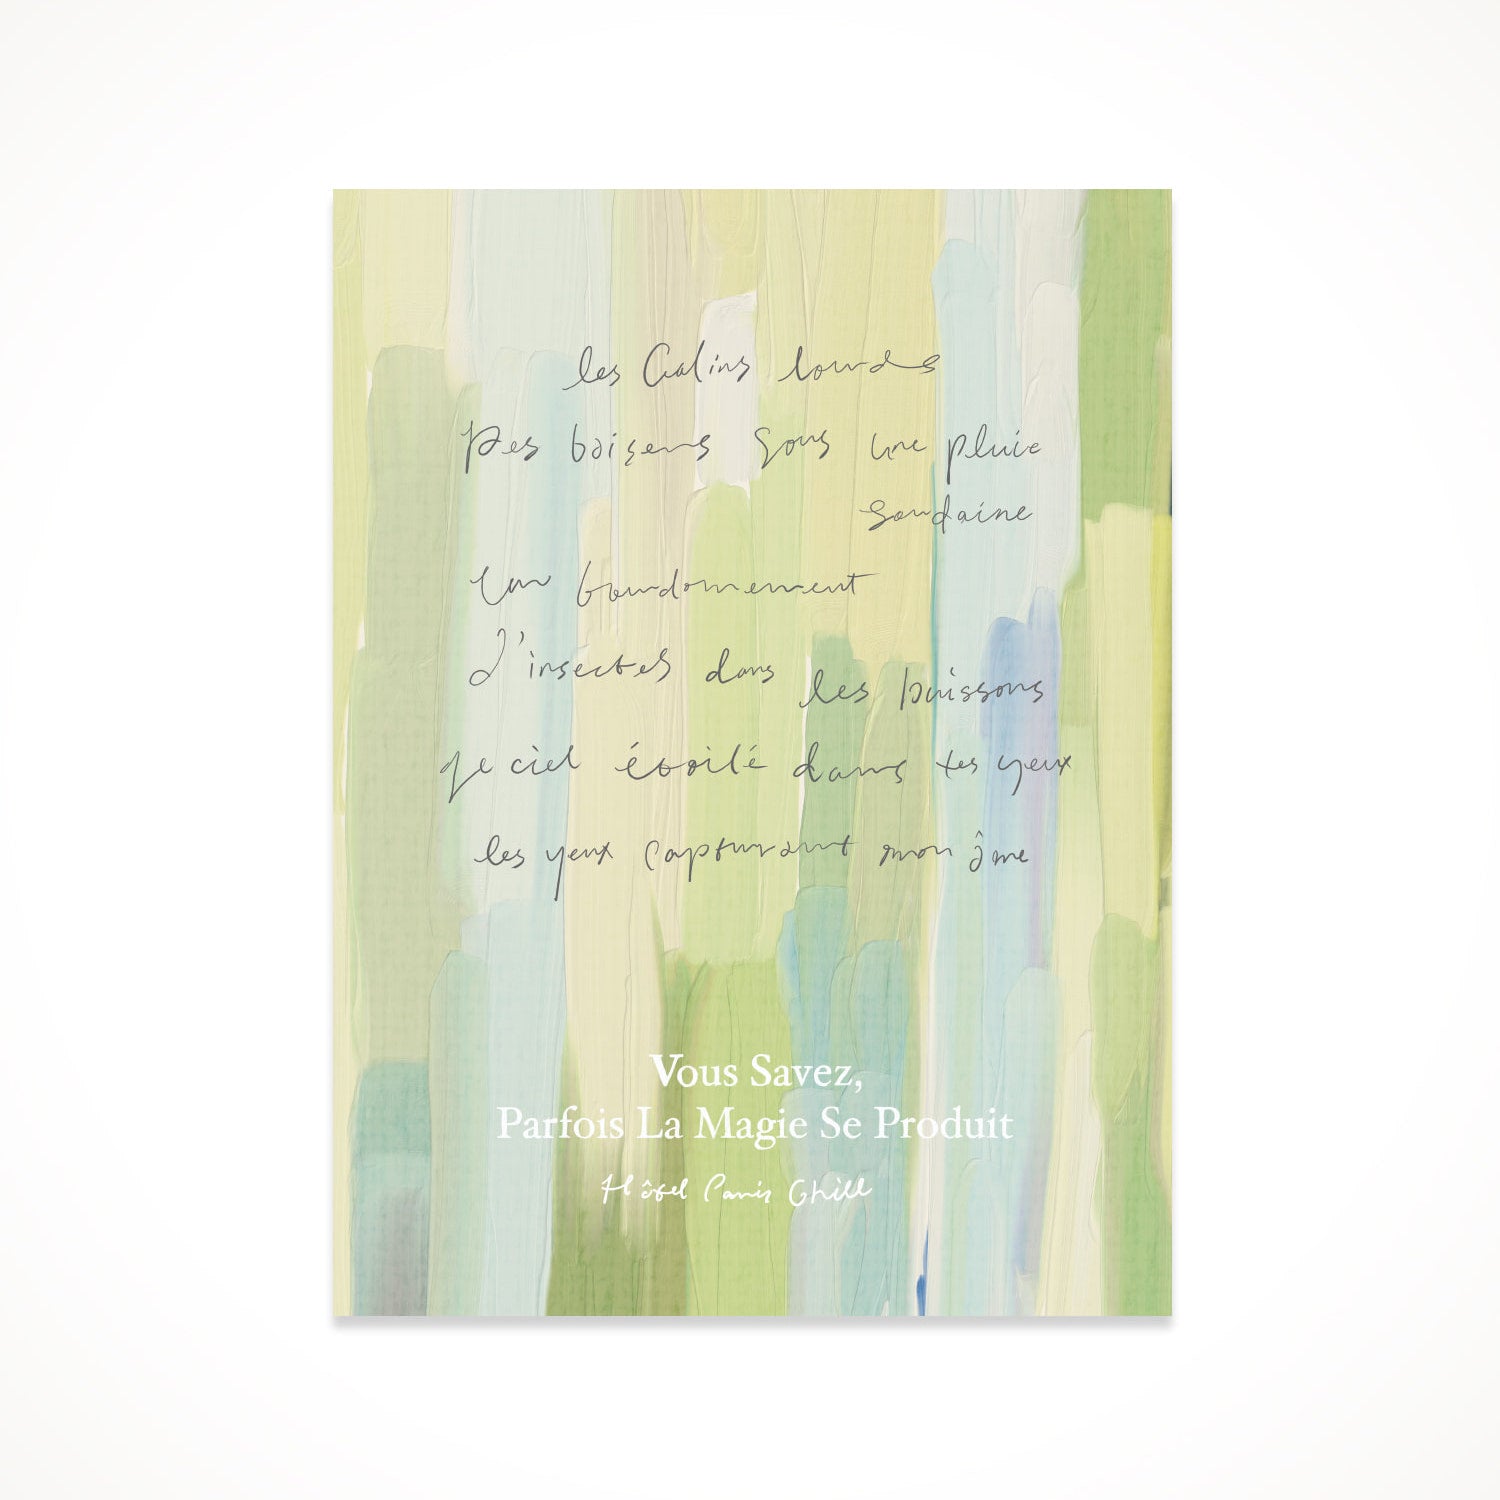 les Calins lourds
Des baisers sous une pluie
soudaine
Un bourdonnement
d'insectes dans les buissons
Le ciel étoilé dans tes yeux
les yeux capturant mon âme
Vous Savez,
Parfois La Magie Se Produit
Hôtel Paris Chill